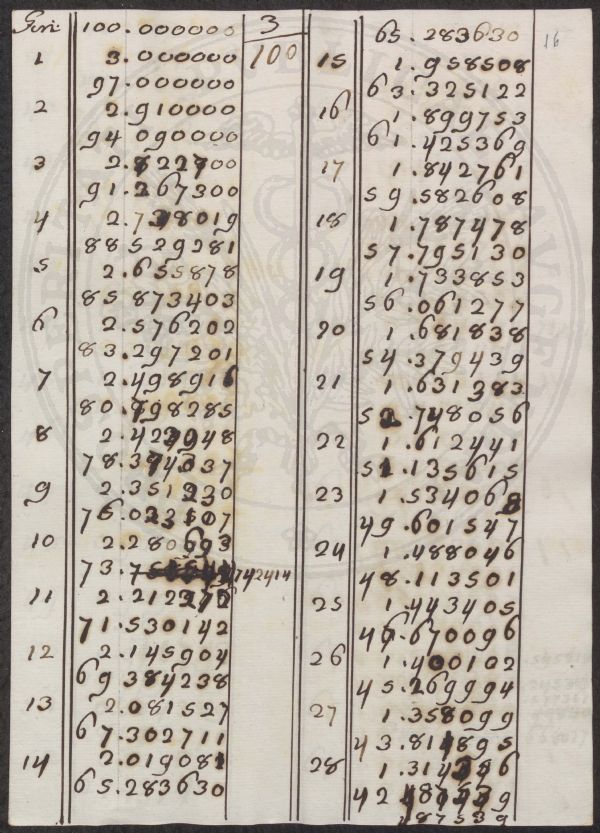 Giri 100.000000 3
1 3.000000 100
97.000000
2 2.910000
94 090000
3 2.822700
91.267300
4 2.738019
88 529281
5 2.655878
85 873403
6 2.576202
83.297201
7 2.498916
80.798285
8 2.423948
78.374337
9 2.351230
76.023107
10 2.280693
73. 742414
11 2.212272
71.530142
12 2.145904
69 384238
13 2.081527
67.302711
14 2.019081
65.283630
65.283630 16
15 1.958508
63.325122
16 1.899753
61.425369
17 1.842761
59.582608
18 1.787478
57.795130
19 1.733853
56.061277
20 1.681838
54.379439
21 1.631383
52.748056
22 1.612441
51.135615
23 1.534068
49.601547
24 1.488046
48.113501
25 1.443405
46.670096
26 1.400102
45.269994
27 1.358099
43.81 895
28 1.314
42
187539